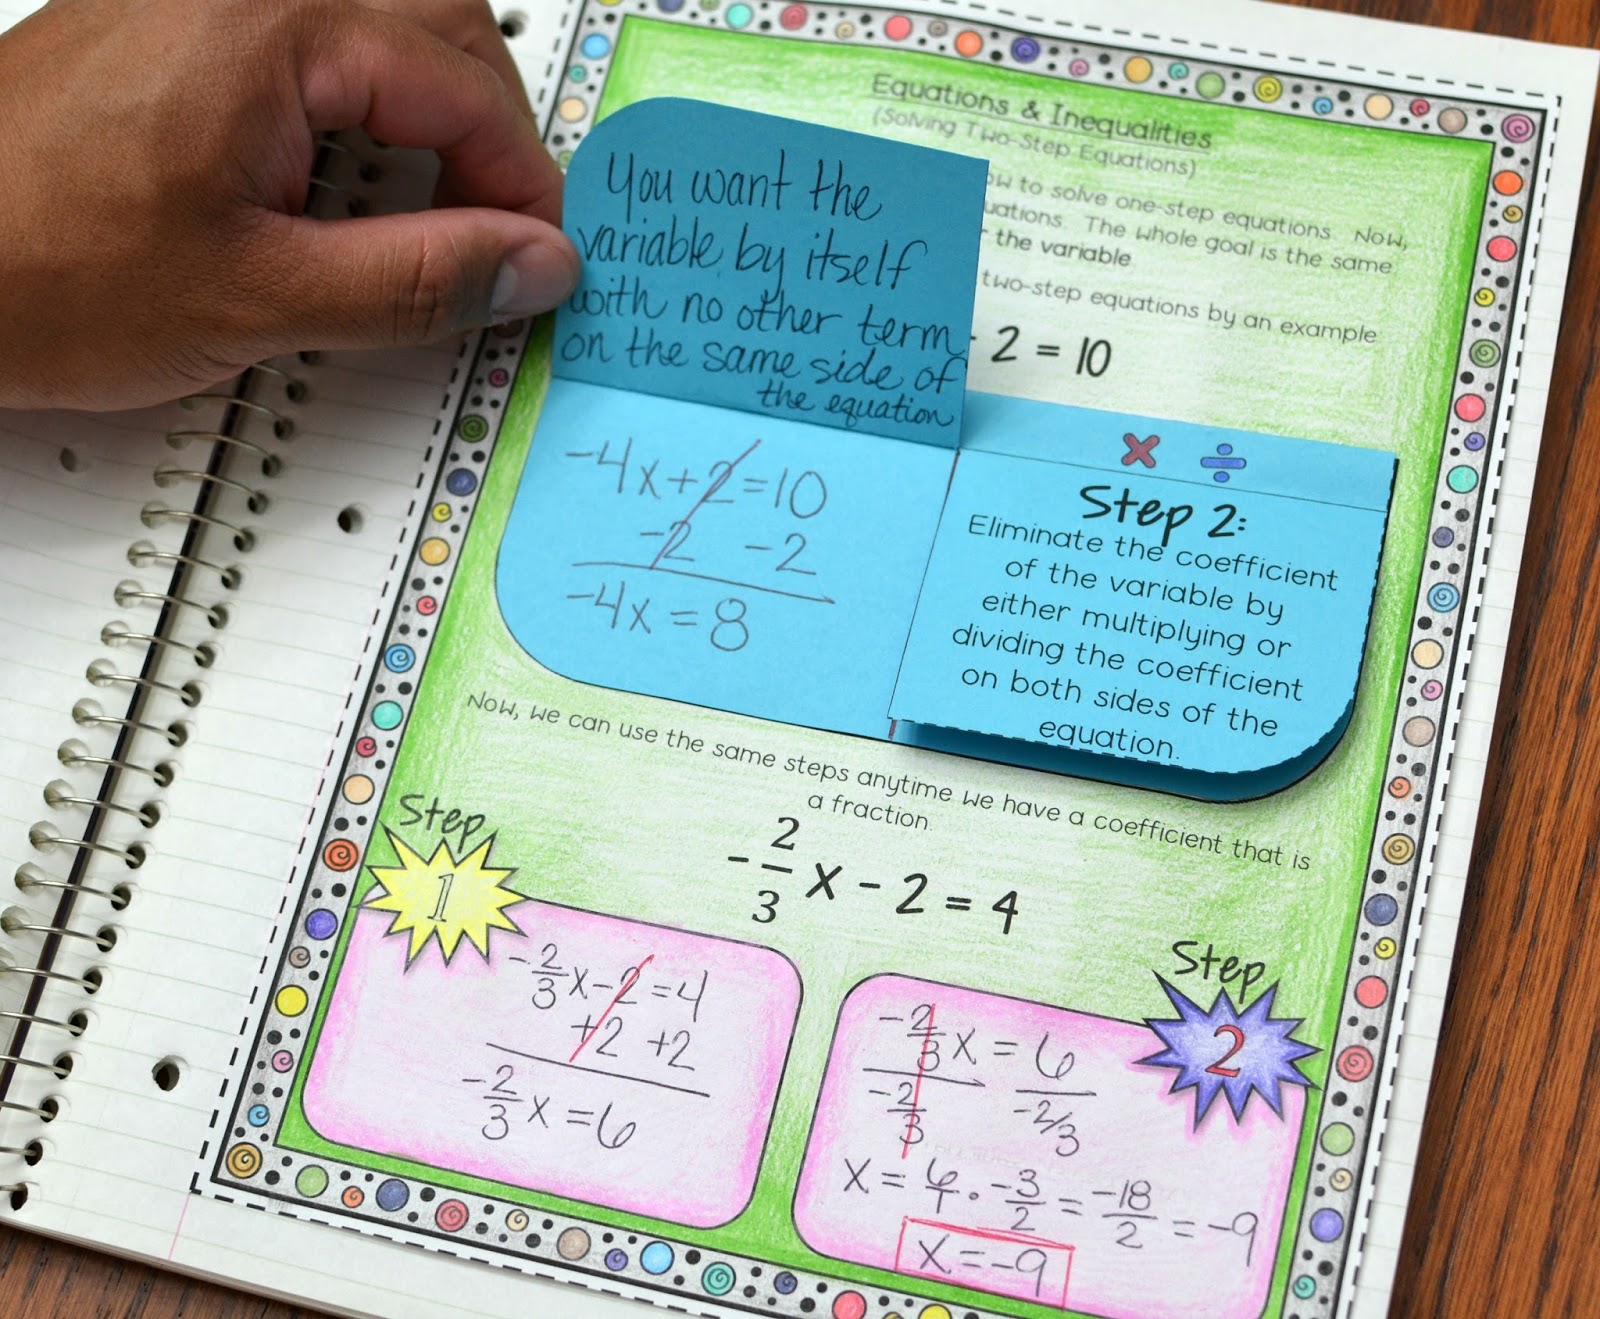 Equations & Inequalities
(Solving Two-Step Equations)
to solve one-step equations. Now,
The whole goal is the same
the variable
two-step equations by an example
2 = 10
You want the
variable by itself
with no other term
on the same side of
the equation
-4x+2=10
-2 -2
-4x=8
× ÷
Step 2:
Eliminate the coefficient
of the variable by
either multiplying or
dividing the coefficient
on both sides of the
equation.
Now, we can use the same steps anytime we have a coefficient that is
a fraction.
-2/3 x - 2 = 4
Step
1
-2/3 x-2=4
+2 +2
-2/3 x=6
Step
2
-2/3 x = 6
-2/3 -2/3
x = 6/1 · -3/2 = -18/2 = -9
x=-9